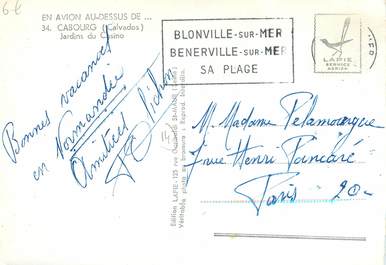 6€
EN AVION AU-DESSUS DE ...
34. CABOURG (Calvados)
Jardins du Casino
BLONVILLE-SUR-MER
BENERVILLE-SUR-MER
SA PLAGE
LAPIE
SERVICE
AERIEN
Bonnes vacances
en Normandie
Amitiés
Edition LAPIE-123 rue
Véritable photo au bromure - Reprod. interdite
M. Madame
7 rue Henri Poincaré
Paris 20